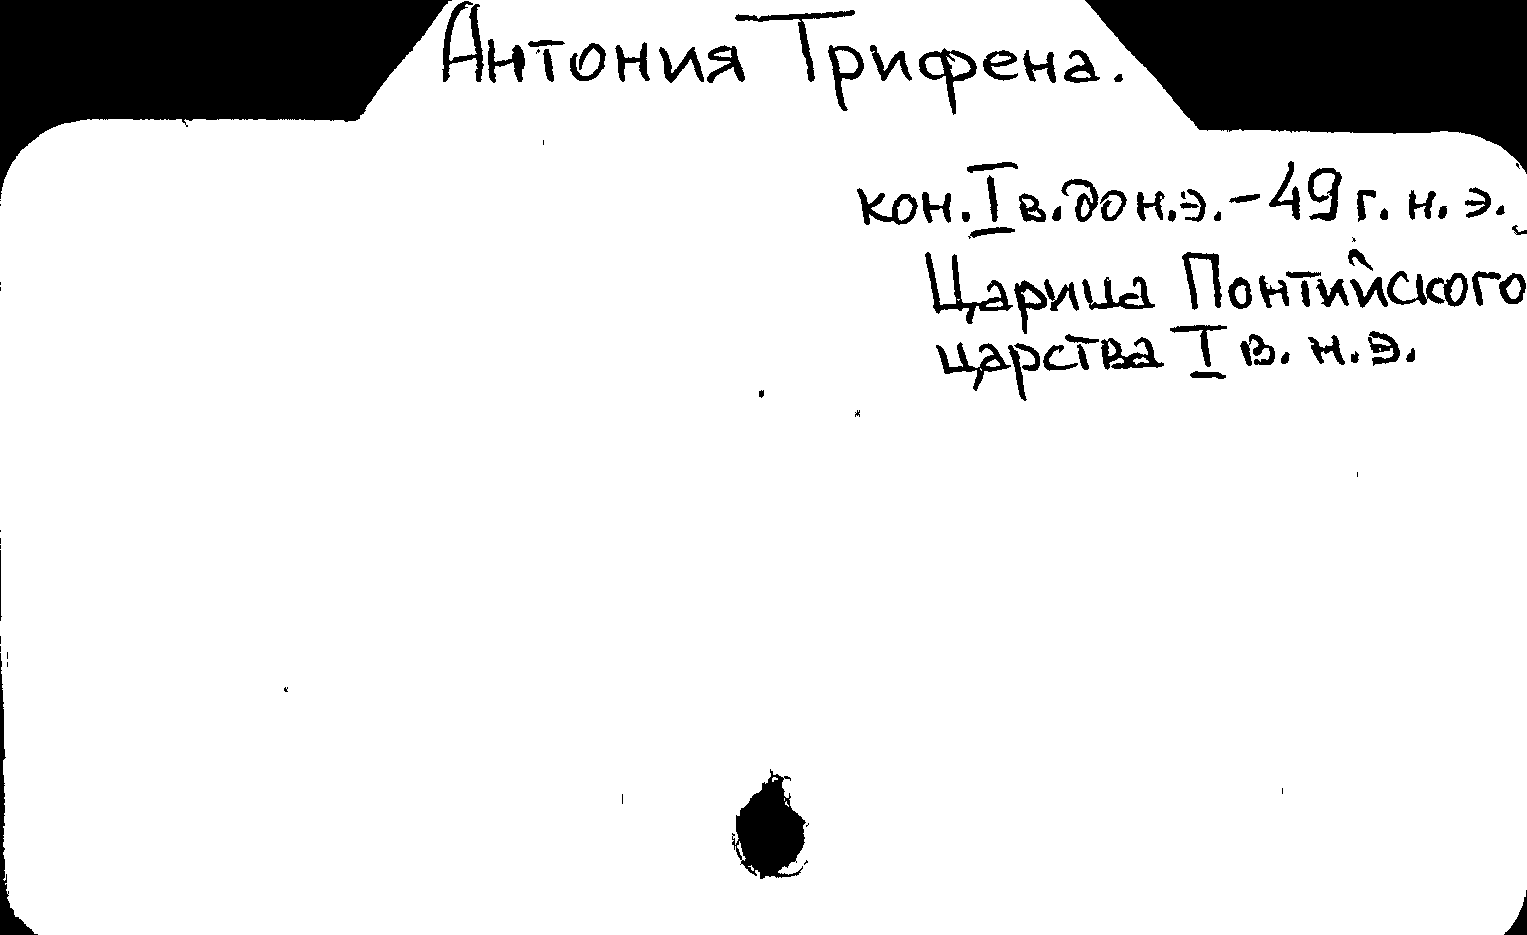 Антония Трифена.
кон. I в. до н.э. – 49 г. н. э.
Царица Понтийского
царства I в. н.э.